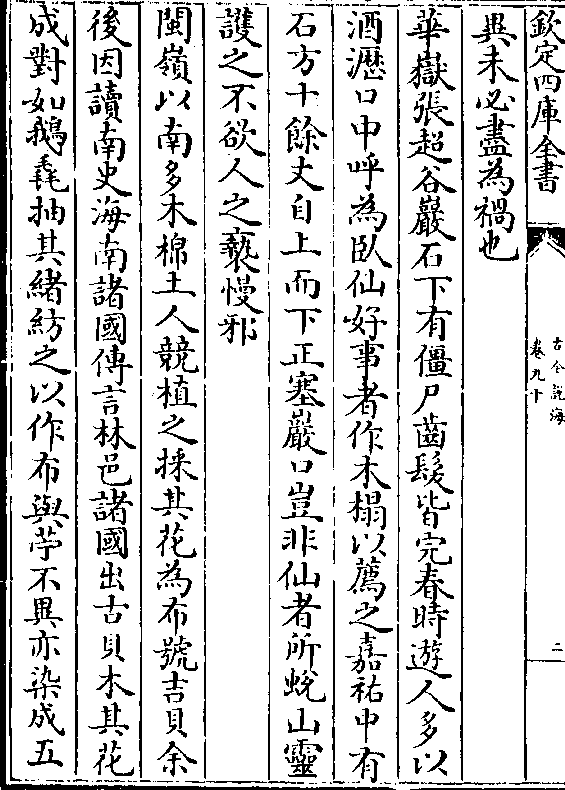 欽定四庫全書
古今說海
卷九十
二
異未必盡為禍也
華嶽張超谷巖石下有僵尸齒髮皆完春時遊人多以
酒瀝口中呼為臥仙好事者作木榻以薦之嘉祐中有
石方十餘丈自上而下正塞巖口豈非仙者所蛻山靈
護之不欲人之褻慢邪
閩嶺以南多木棉土人競植之採其花為布號吉貝余
後因讀南史海南諸國傳言林邑諸國出古貝木其花
成對如鵝毳抽其緒紡之以作布與苧不異亦染成五